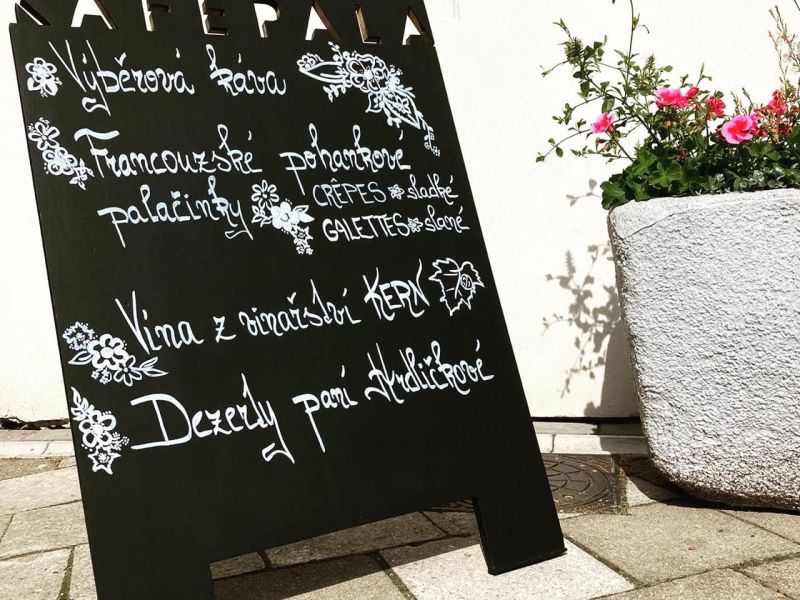 KAFEPALA
Výběrová káva
Francouzské pohankové
palačinky CRÊPES sladké
GALETTES slané
Vína z vinařství KERN
Dezerty paní Hrdličkové